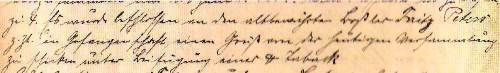 zu 7. Es wurde beschlossen an den altbewährten Boßler Fritz Peters
z. Zt. in Gefangenschaft einen Gruß von der heutigen Versammlung
zu schicken unter Beifügung eines Tabak